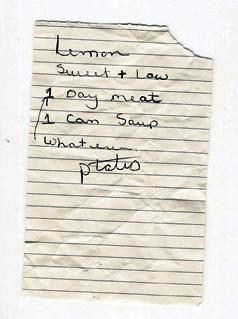 Lemon
Sweet + Low
1 Day meat
1 Can Soup
whatever
plates